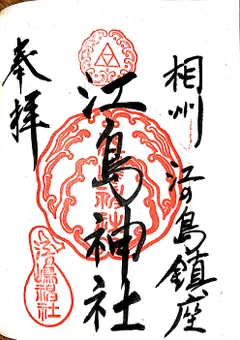 奉拝
相州 江の島鎮座
江島神社
江嶋神社